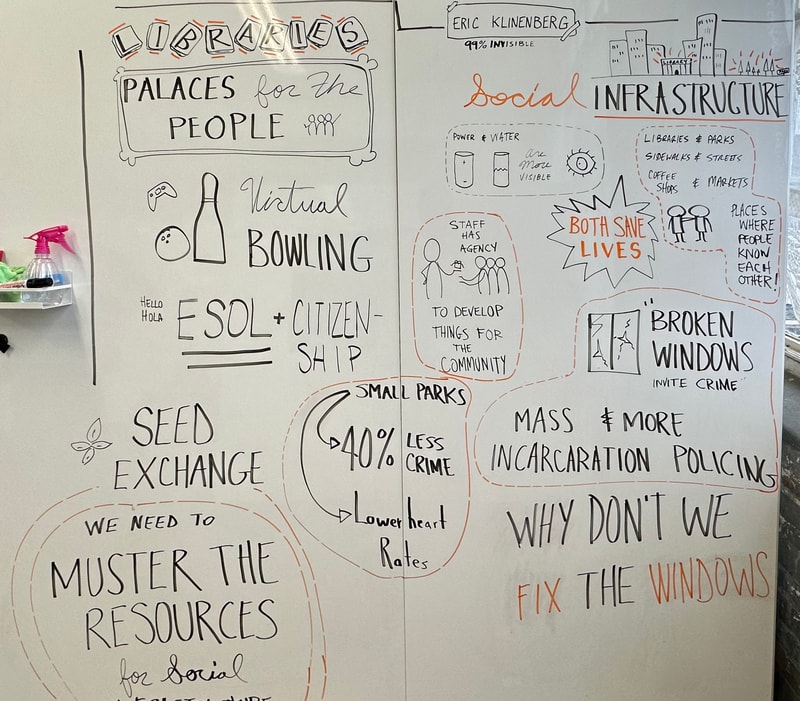 LIBRARIES
PALACES for The
PEOPLE
Virtual
BOWLING
HELLO
HOLA
ESOL + CITIZEN-
SHIP
SEED
EXCHANGE
WE NEED TO
MUSTER THE
RESOURCES
for Social
SMALL PARKS
40% LESS
CRIME
Lower heart
Rates
ERIC KLINENBERG
99% INVISIBLE
LIBRARY
Social INFRASTRUCTURE
POWER & WATER
are
More
VISIBLE
LIBRARIES & PARKS
SIDEWALKS & STREETS
COFFEE
SHOPS & MARKETS
PLACES
WHERE
PEOPLE
KNOW
EACH
OTHER!
BOTH SAVE
LIVES
STAFF
HAS
AGENCY
TO DEVELOP
THINGS FOR
THE
COMMUNITY
"BROKEN
WINDOWS
INVITE CRIME"
MASS & MORE
INCARCARATION POLICING
WHY DON'T WE
FIX THE WINDOWS